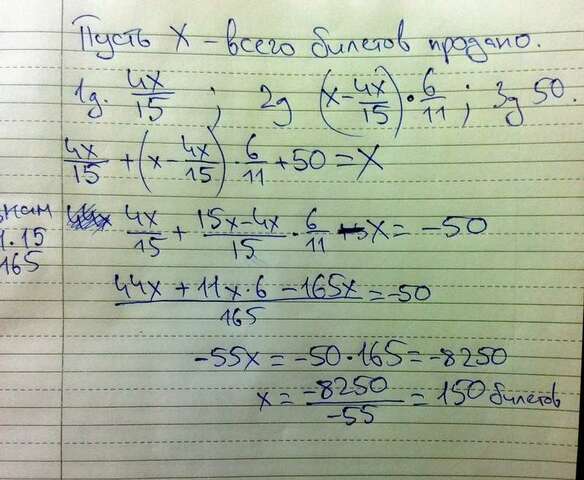 Пусть X - всего билетов продано.
1д. 4x/15 ; 2д (x - 4x/15) · 6/11 ; 3д 50.
4x/15 + (x - 4x/15) · 6/11 + 50 = X
4x/15 + 15x - 4x/15 · 6/11 - x = -50
знам
15
165
44x + 11x · 6 - 165x/165 = -50
-55x = -50 · 165 = -8250
x = -8250/-55 = 150 билетов